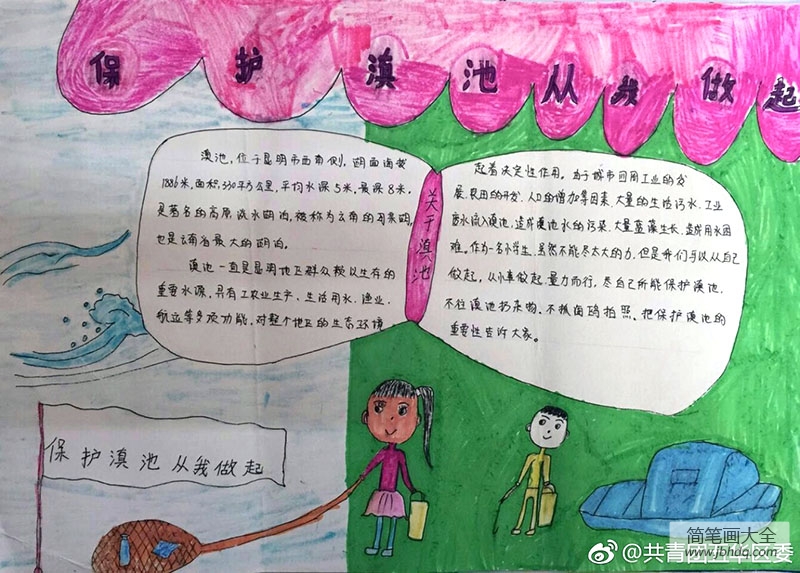 保护滇池从我做起
滇池，位于昆明市西南侧，湖面海拔
1886米，面积，330平方公里，平均水深5米，最深8米，
是著名的高原淡水湖泊，被称为云南的母亲湖，
也是云南省最大的湖泊。
滇池一直是昆明地区群众赖以生存的
重要水源，具有工农业生产、生活用水、渔业、
航运等多项功能，对整个地区的生态环境
关于滇池
起着决定性作用。由于城市周围工业的发
展、农田的开发、人口的增加等因素，大量的生活污水、工业
废水流入滇池，造成滇池水的污染，大量蓝藻生长，造成用水困
难。作为一名小学生，虽然不能尽太大的力，但是我们可以从自己
做起，从小事做起，量力而行，尽自己所能保护滇池，
不往滇池扔杂物，不抓海鸥拍照，把保护滇池的
重要性告诉大家。
保护滇池从我做起
简笔画大全
www.jbhuq.com